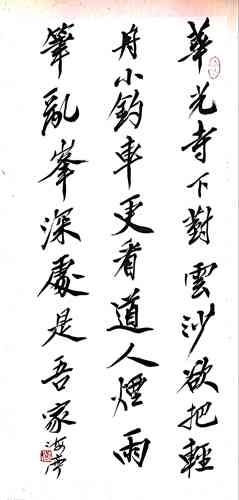 華光寺下對雲沙欲把輕
舟小釣車更看道人煙雨
筆亂峯深處是吾家